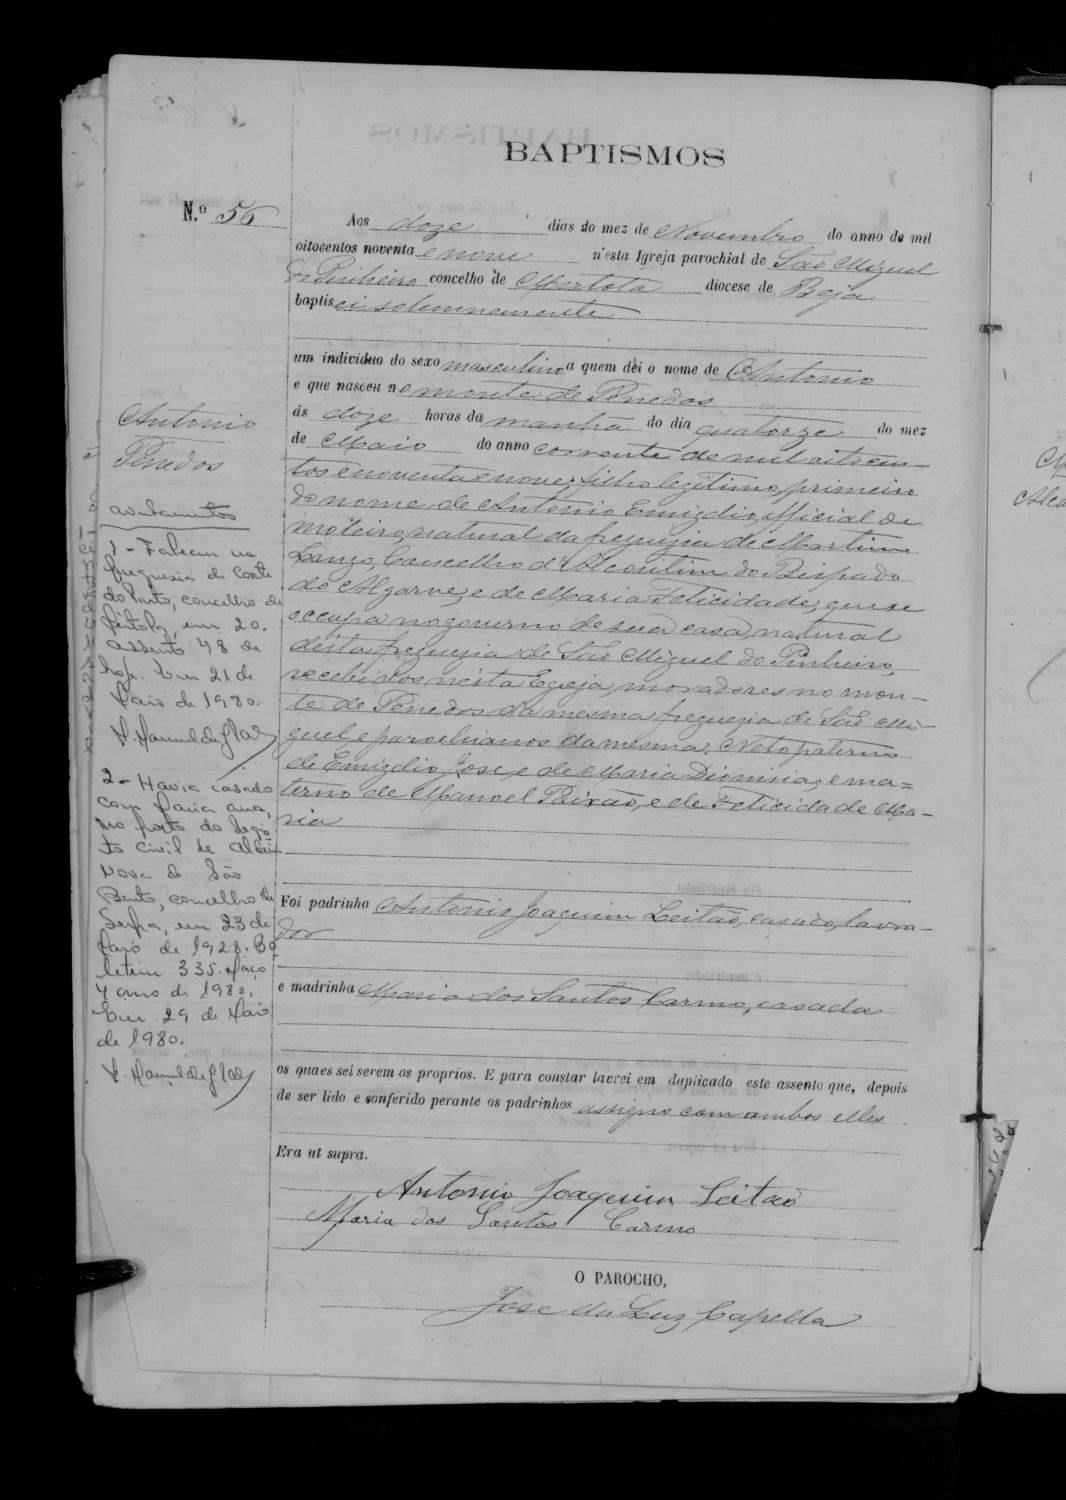 BAPTISMOS
N.º 56
Aos doze dias do mez de Novembro do anno de mil
oitocentos noventa e nove n'esta Igreja parochial de São Miguel
do Pinheiro concelho de Mertola diocese de Beja
baptisei solemnemente
um individuo do sexo masculino a quem dei o nome de Antonio
e que nasceu no monte de Penedos
ás doze horas da manhã do dia quatorze do mez
de Maio do anno corrente de mil oitocen-
tos e noventa e nove, filho legitimo, primeiro
do nome de Antonio Emigdio, official de
moleiro, natural da freguezia de Martim
Longo, Concelho d'Alcoutim do Bispado
do Algarve, e de Maria Felicidade, que se
occupa no governo de sua casa, natural
désta freguezia de São Miguel do Pinheiro,
recebidos nésta Egreja, moradores no mon-
te de Penedos da mesma freguezia de São Mi-
guel e parochianos da mesma. Neto paterno
de Emigdio José, e de Maria Dionisia, e ma=
terno de Manoel Paixão, e de Felicidade Ma-
ria
Foi padrinho Antonio Joaquim Leitão, casado, lavra-
dor
e madrinha Maria dos Santos Carmo, casada
os quaes sei serem os proprios. E para constar lavrei em duplicado este assento que, depois
de ser lido e conferido perante os padrinhos assigno com ambos elles
Era ut supra.
Antonio Joaquim Leitão
Maria dos Santos Carmo
O PAROCHO,
José da Luz Capella
Antonio
Penedos
averbamentos
1 - Faleceu na
freguesia de Corte
do Pinto, concelho de
Mértola, em 20.
assento 48 de
hoje. Em 21 de
Maio de 1980.
2 - Havia casado
com Maria Ana,
no posto do regis
to civil de Aldeia
Nova de São
Bento, concelho de
Serpa, em 23 de
Maio de 1928. Bo
letim 335. Maço
4 ano de 1980.
Em 29 de Maio
de 1980.